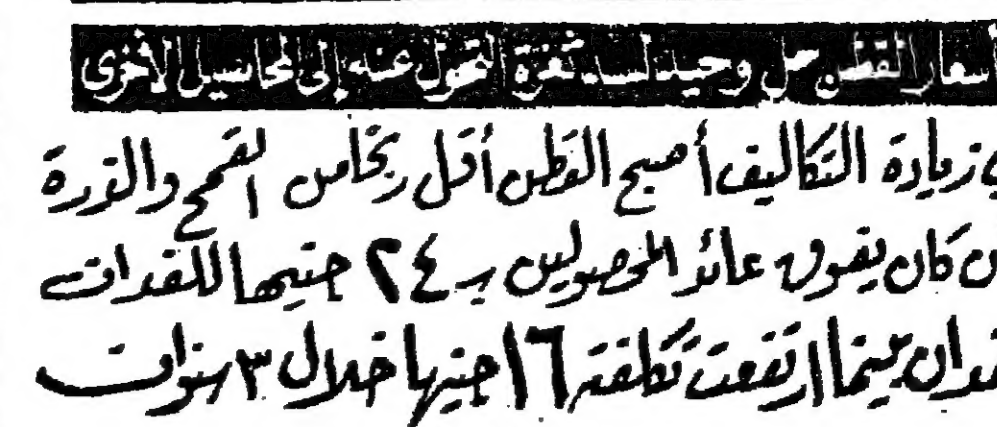 أسعار القطن حل وحيد لسد ثغرة التحول عنه إلى المحاصيل الأخرى
زيادة التكاليف أصبح القطن أقل ربحا من القمح والذرة
كان يفوق عائد المحصولين بـ ٢٤ جنيها للفدان
بينما ارتفعت تكلفته ١٦ جنيها خلال ٣ سنوات